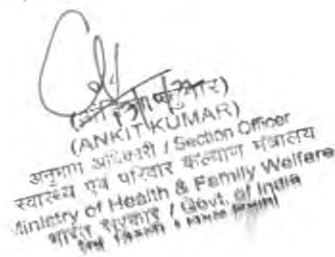 (ANKIT KUMAR)
अनुभाग अधिकारी / Section Officer
स्वास्थ्य एवं परिवार कल्याण मंत्रालय
Ministry of Health & Family Welfare
भारत सरकार / Govt. of India